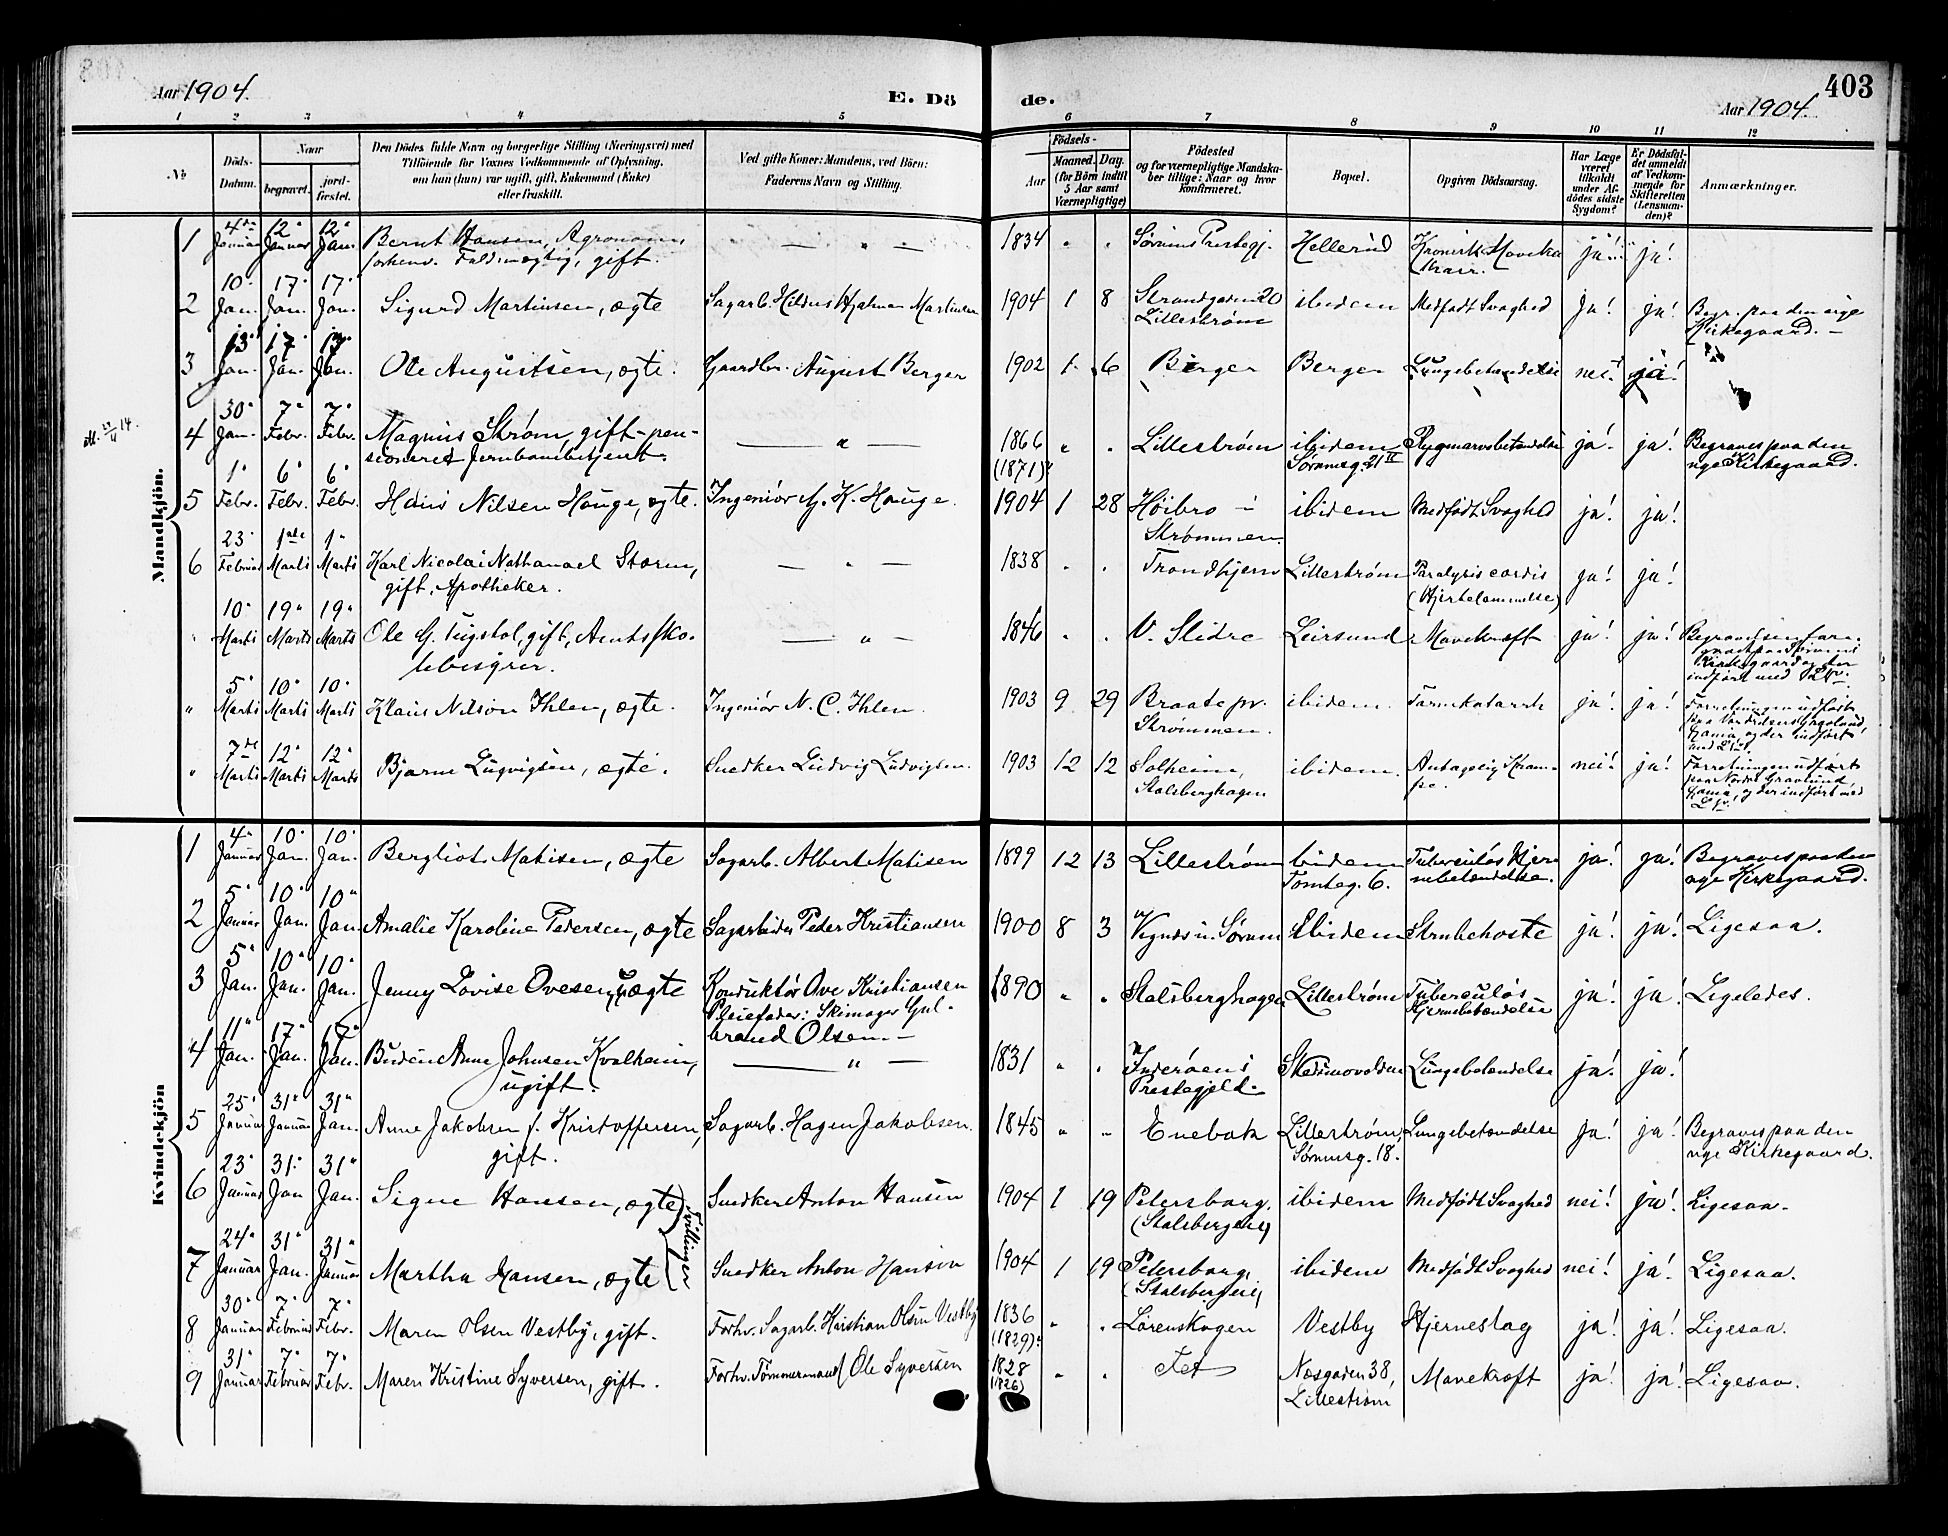 Aar 1904.
E. Dö de.
403
Aar 1904.
1 2 3 4 5 6 7 8 9 10 11 12
No
Döds-Datum.
Naar
begravet.
jordfæstet.
Den Dödes fulde Navn og borgerlige Stilling (Næringsvei) med
Tilföiende for Voxnes Vedkommende af Oplysning,
om han (hun) var ugift, gift, Enkemand (Enke)
eller fraskilt.
Ved gifte Koner: Mandens, ved Börn:
Faderens Navn og Stilling.
Födsels-
Aar
Maaned. Dag.
(for Börn indtil
5 Aar samt
Værnepligtige)
Födested
og for værnepligtige Mandska-
ber tillige: Naar og hvor
konfirmeret.
Bopæl.
Opgiven Dödsaarsag.
Har Læge
været
tilkaldt
under Af-
dödes sidste
Sygdom?
Er Dödsfal-
det anmeldt
af Vedkom-
mende for
Skifteretten
(Lensman-
den)?
Anmærkninger.
Mandkjön.
1 4de Januar 12" Januar 12" Jan. Bernt Hansen, Agronom, — " — 1834 " " Sørums Prestegj. Hellerud Kronisk Mavekatarr. ja! ja!
forhenv. Fuldmægtig, gift.
2 10" Jan. 17" Jan. 17" Jan. Sigurd Martinsen, ægte Sagarb. Hildus Hjalmar Martinsen 1904 1 8 Strandgaden 20 Lillestrøm ibidem Medfødt Svaghed Ja! ja! Begr. paa den nye Kirkegaard. —
3 13" Jan. 17" Jan. 17" Jan. Ole Augustsen, ægte. Gaardbr. August Berger 1902 1 6 Berger Berger Lungebetændelse nei! ja!
4 30" Jan. 7" Febr. 7" Febr. Magnus Strøm, gift - pen-
sioneret Jernbanebetjent. — " — 1866 (1871)? " " Lillestrøm ibidem Sørumsg. 21 II Rygmarvsbetændelse ja! ja! Begraves paa den nye Kirkegaard.
5 1" Febr. 6" Febr. 6" Febr. Hans Nilsen Hauge, ægte. Ingeniør K. Hauge. 1904 1 28 Høibro i Strømmen ibidem Medfødt Svaghed ja! ja!
6 23" Februar 1ste Marts 1" Marts Karl Nicolai Nathanael Storm,
gift, Apotheker. — " — 1838 " " Trondhjem Lillestrøm Paralysis cordis (Hjertelammelse) ja! ja!
" 10" Marts 19" Marts 19" Marts Ole G. gift, Amtssko-
lebestyrer. — " — 1846 " " V. Slidre Leirsund Mavekræft ja! ja!
" 5" Marts 10" Marts 10" Marts Klaus Nilson Ihlen, ægte. Ingeniør N. C. Ihlen. 1903 9 29 Braate pr. Strømmen. ibidem. Tarmkatarrh ja! ja! Forretningen udført paa Vor Frelsers Gravlund, Krania, og der indført
" 7de Marts 12" Marts 12" Marts Bjarne Lugvigsen, ægte. Snedker Ludvig Ludvigsen. 1903 12 12 Solheim, Stalsberghagen ibidem. Antagelig Krampe. nei! ja! Forretningen udført paa Nordre Gravlund, Krania, og der indført med
Kvindekjön
1 4" Januar 10" Jan. 10" Jan. Bergliot Matisen, ægte Sagarb. Albert Matisen 1899 12 13 Lillestrøm ibidem Tomteg. 6. Tuberculøs Hjernebetændelse. ja! ja! Begraves paa den nye Kirkegaard.
2 5" Januar 10" Jan. 10" Jan. Amalie Karoline Pedersen, ægte Sagarbeider Peder Kristiansen 1900 8 3 Vignæs i N. Sørum Ibidem Strubehoste ja! ja! Ligesaa.
3 5" Jan. 10" Jan. 10" Jan. Jenny Lovise Ovesen, uægte Konduktør Ove Kristiansen
Pleiefader: Skimager Gul-
brand Olsen. — 1890 " " Stalsberghagen Lillestrøm Tuberculøs Hjernebetændelse ja! ja! Ligeledes.
4 11" Jan. 17" Jan. 17" Jan. Anne Johnsen Kvalheim,
ugift. — " — 1831 " " Inderøens Prestegjeld. Skedsmovolden Lungebetendelse ja! ja!
5 25" Januar 31" Januar 31" Jan. Anne Jakobsen f. Kristoffersen,
gift. Sagarb. Hagen Jakobsen. 1845 " " Enebak Lillestrøm, Sørumsg. 18. Lungebetændelse Ja! ja! Begraves paa den nye Kirkegaard.
6 23" Januar 31" Jan 31" Jan. Signe Hansen, ægte Snedker Anton Hansen 1904 1 19 Petersborg. (Stalsbergeie) ibidem Medfødt Svaghed nei! ja! Ligesaa.
Tvillinger
7 24" Januar 31" Jan. 31" Januar Martha Hansen, ægte Snedker Anton Hansen 1904 1 19 Petersborg, (Stalsbergeie) ibidem Medfødt Svaghed nei! ja! Ligesaa.
8 30" Januar 7" Februar 7" Febr. Maren Olsen Vestby, gift. Forhv. Sagarb. Kristian Olsen Vestby 1836 (1829)? " " Lørenskogen Vestby Hjerneslag ja! ja! Ligesaa.
9 31" Januar 7" Februar 7" Febr. Maren Kristine Syversen, gift. Forhv. Tømmermand Ole Syversen 1828 (1826) " " Fet Næsgaden 38, Lillestrøm Mavekræft ja! ja! Ligesaa.